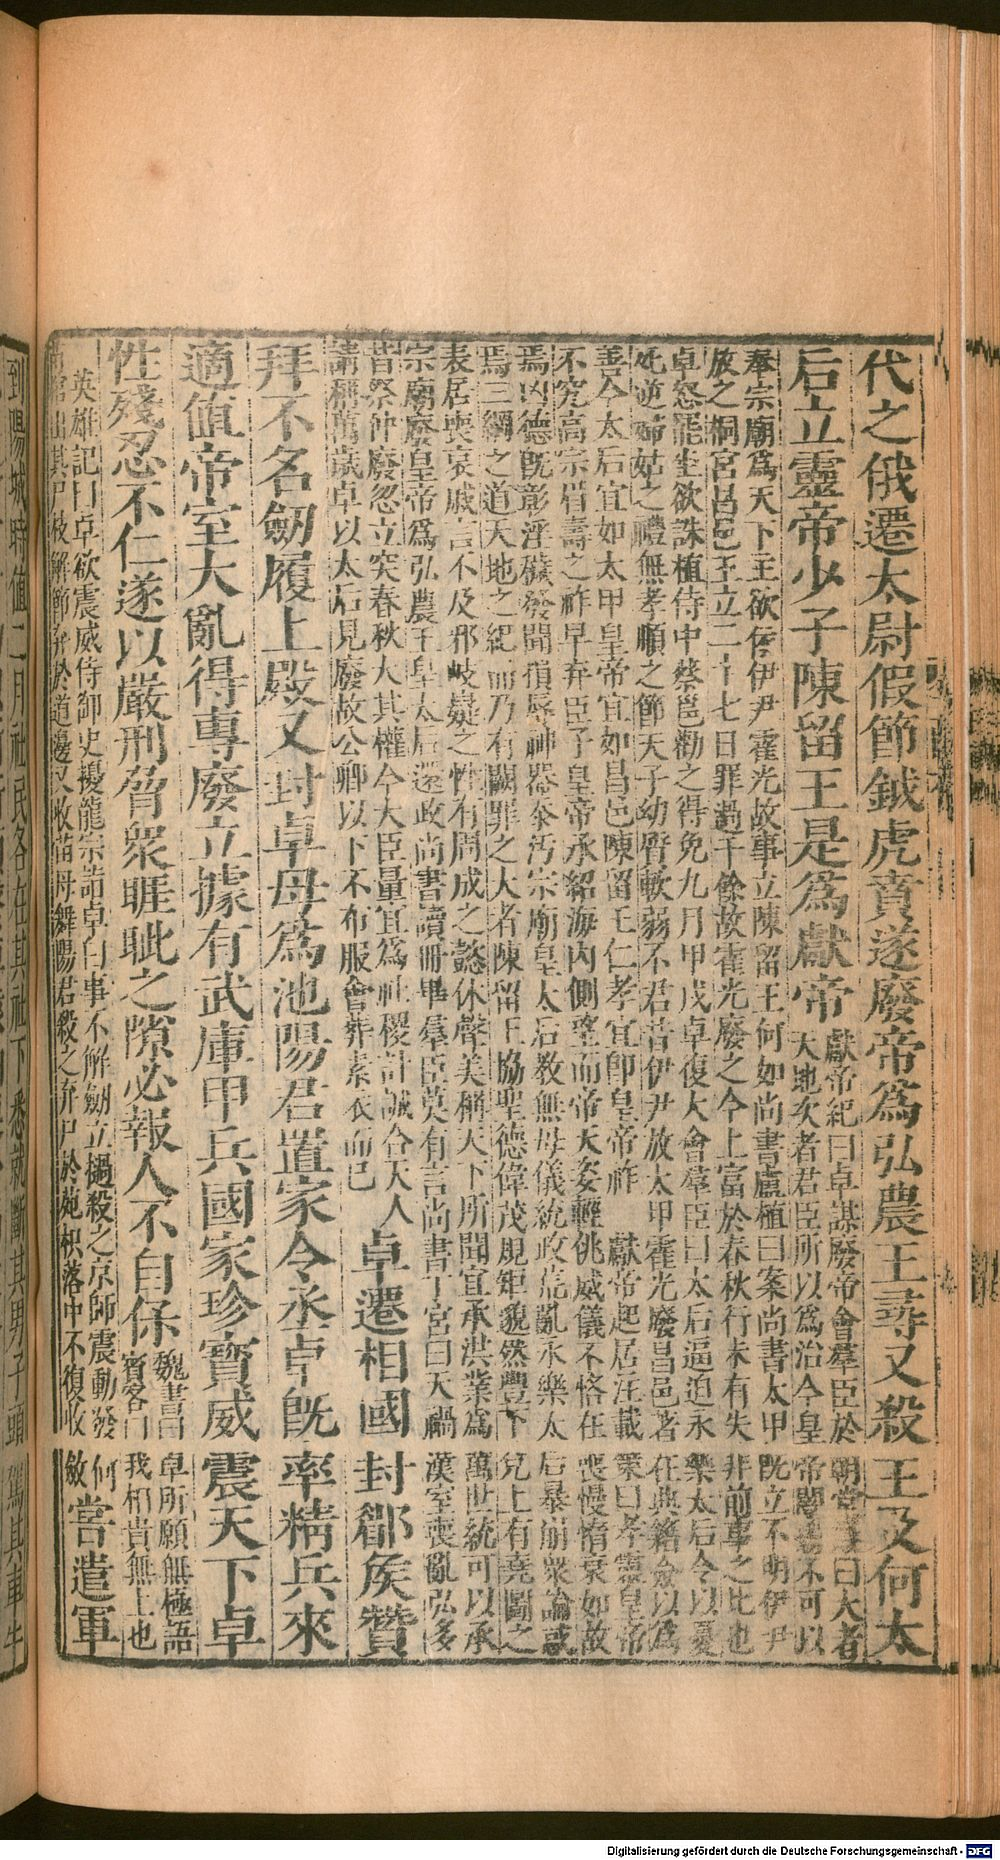 代之俄遷太尉假節鉞虎賁遂廢帝爲弘農王尋又殺王及何太
后立靈帝少子陳留王是爲獻帝
獻帝紀曰卓謀廢帝會羣臣於朝堂議曰大者
天地次者君臣所以爲治今皇帝闇弱不可以
奉宗廟爲天下主欲依伊尹霍光故事立陳留王何如尚書盧植曰案尚書太甲既立不明伊尹
放之桐宮昌邑王立二十七日罪過千餘故霍光廢之今上富於春秋行未有失非前事之比也
卓怒罷坐欲誅植侍中蔡邕勸之得免九月甲戌卓復大會羣臣曰太后逼迫永樂太后令以憂
死逆婦姑之禮無孝順之節天子幼質軟弱不君昔伊尹放太甲霍光廢昌邑著在典籍僉以爲
善今太后宜如太甲皇帝宜如昌邑陳留王仁孝宜卽皇帝祚　獻帝起居注載策曰孝靈皇帝
不究高宗眉壽之祚早弃臣子皇帝承紹海內側望而帝天姿輕佻威儀不恪在喪慢惰衰如故
焉凶德旣彰淫穢發聞損辱神器忝污宗廟皇太后敎無母儀統政荒亂永樂太后暴崩衆論惑
焉三綱之道天地之紀而乃有闕罪之大者陳留王協聖德偉茂規矩邈然豐下兌上有堯圖之
表居喪哀戚言不及邪岐嶷之性有周成之懿休聲美稱天下所聞宜承洪業爲萬世統可以承
宗廟廢皇帝爲弘農王皇太后還政尚書讀冊畢羣臣莫有言尚書丁宮曰天禍漢室喪亂弘多
昔祭仲廢忽立突春秋大其權今大臣量宜爲社稷計誠合天人
請稱萬歲卓以太后見廢故公卿以下不布服會葬素衣而已
卓遷相國封郿侯贊
拜不名劒履上殿又封卓母爲池陽君置家令丞卓旣率精兵來
適值帝室大亂得專廢立據有武庫甲兵國家珍寶威震天下卓
性殘忍不仁遂以嚴刑脅衆睚眦之隙必報人不自保
魏書曰卓所願無極語
賓客曰我相貴無上也
英雄記曰卓欲震威侍御史擾龍宗詣卓白事不解劒立撾殺之京師震動發何
苗棺出其尸枝解節弃於道邊又收苗母舞陽君殺之弃尸於苑枳落中不復收斂
嘗遣軍
到陽城時值二月社民各在其社下悉就斷其男子頭駕其車牛
Digitalisierung gefördert durch die Deutsche Forschungsgemeinschaft - DFG